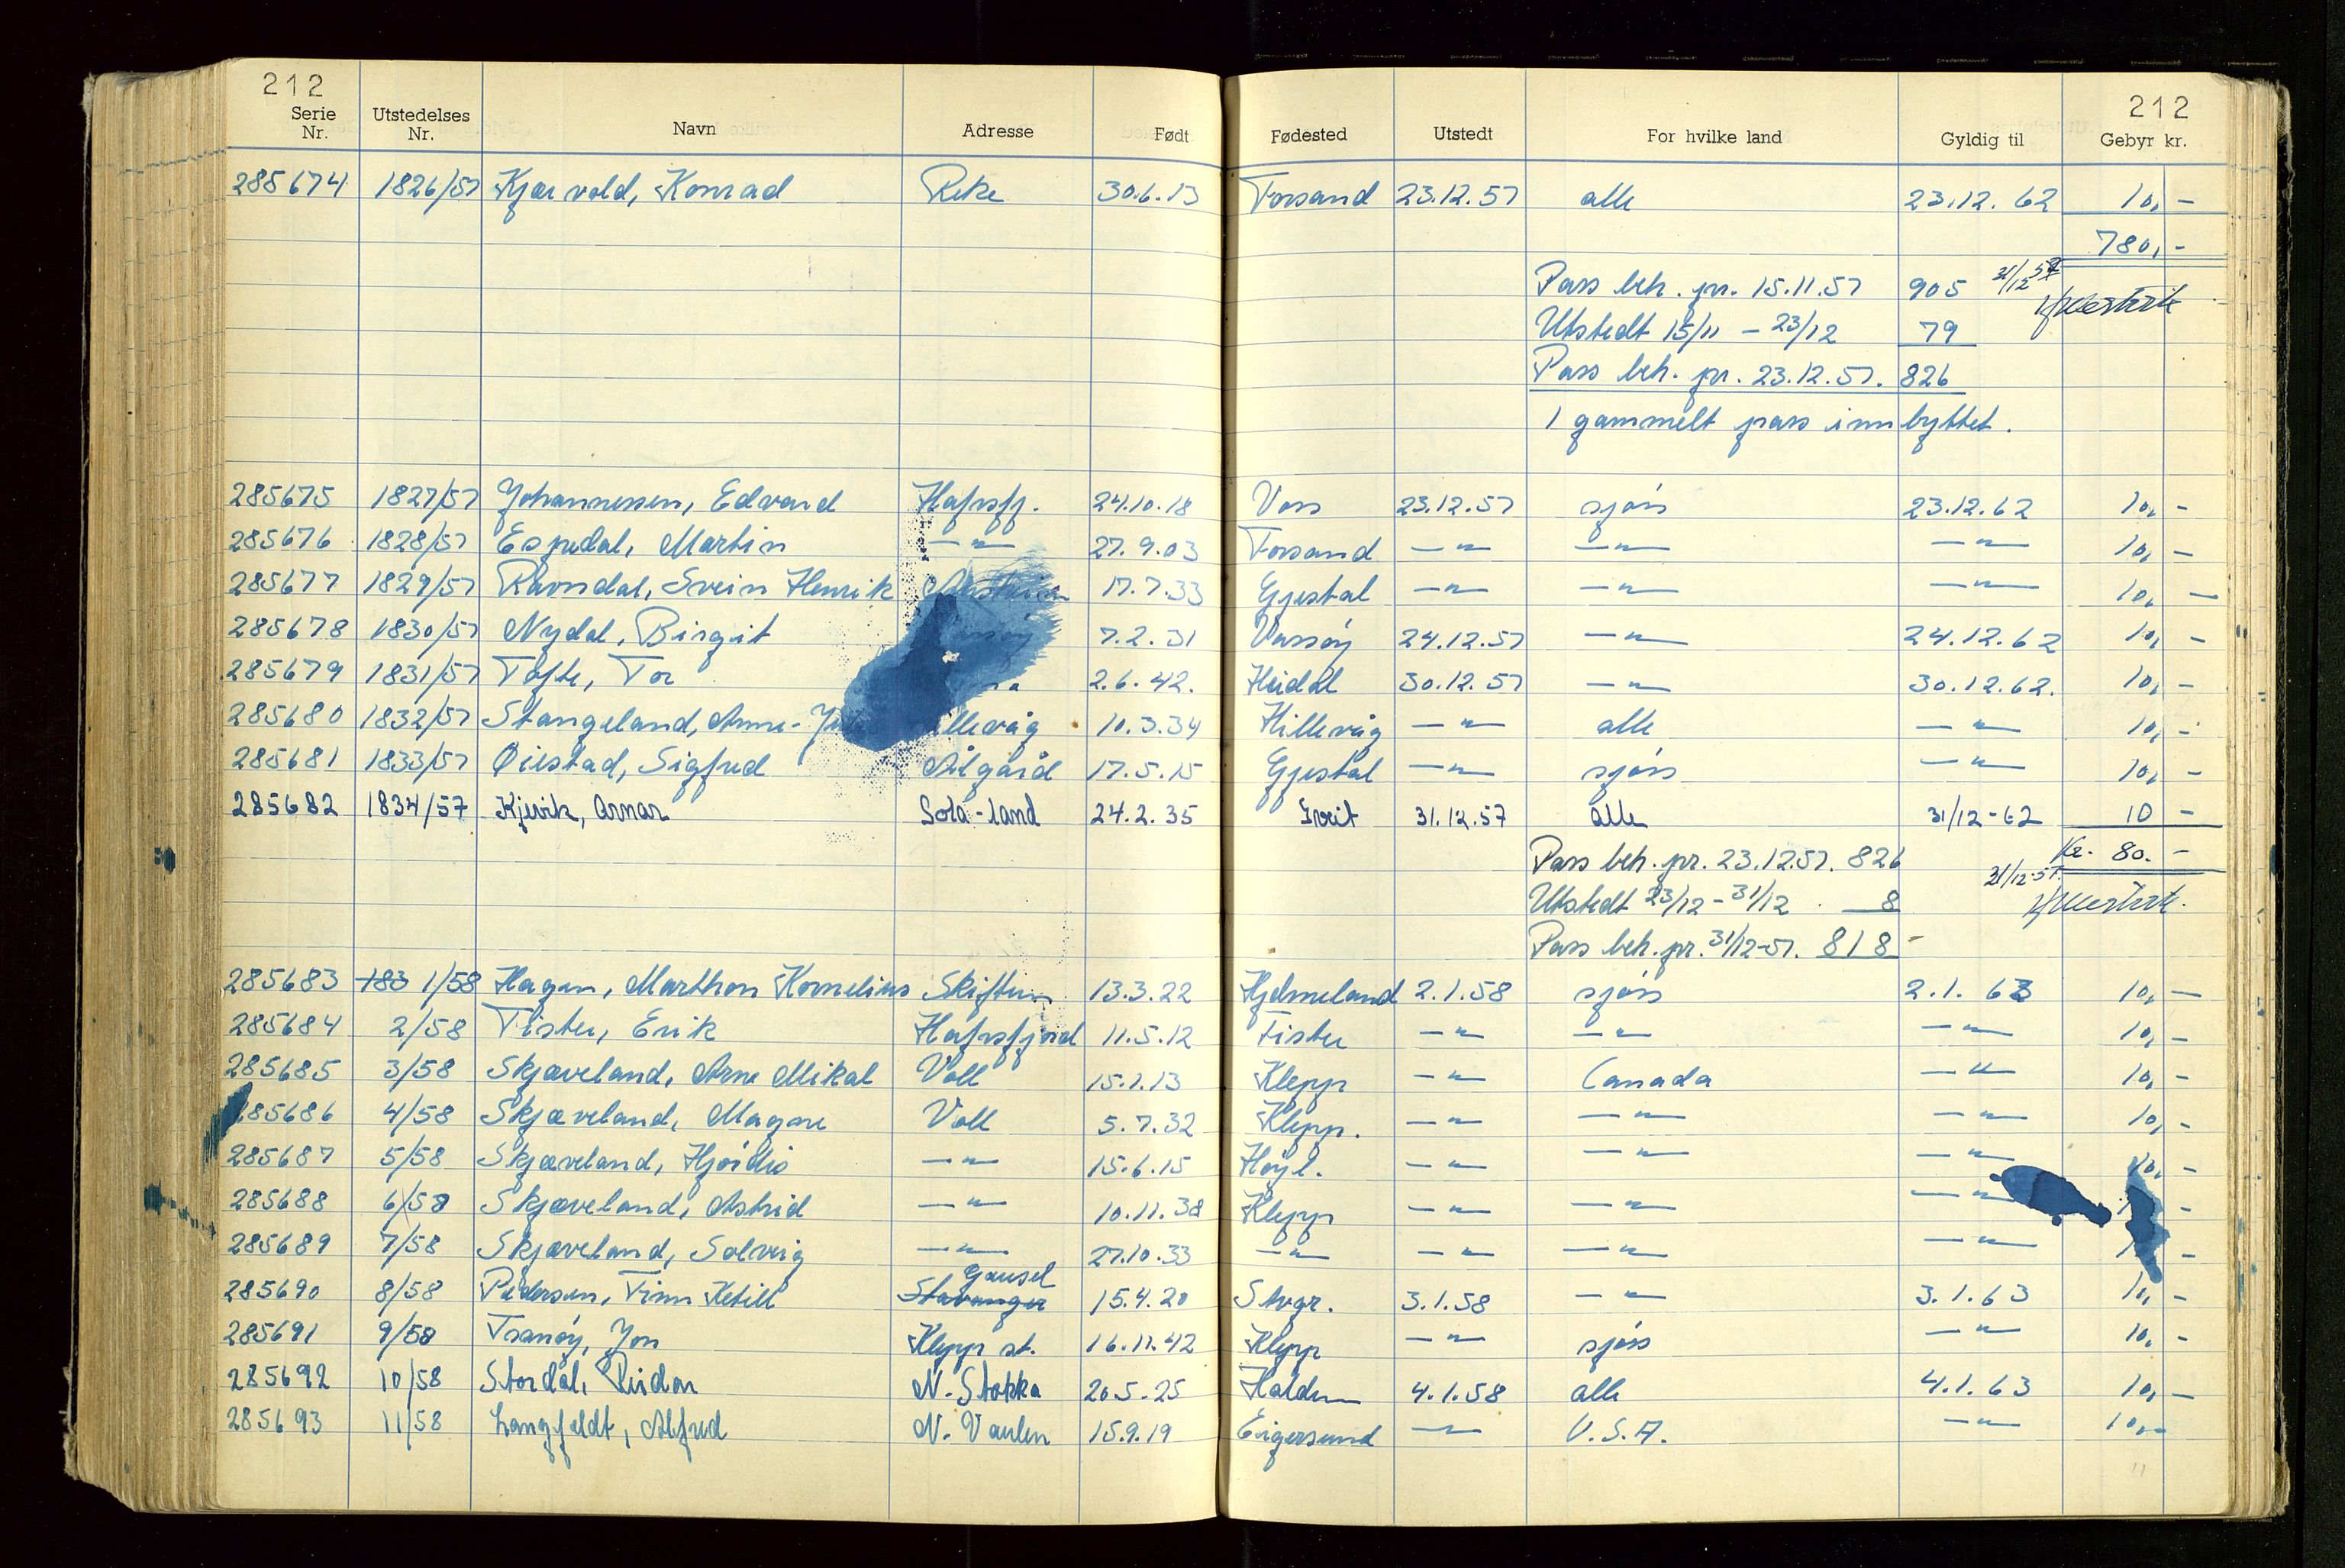 212
212
Serie Nr. Utstedelses Nr. Navn Adresse Født Fødested Utstedt For hvilke land Gyldig til Gebyr kr.
285674 1826/57 Kjærvold, Konrad Reke 30.6.13 Forsand 23.12.57 alle 23.12.62 10,-
780,-
Pass beh. pr. 15.11.57 905 31/12 57
Utstedt 15/11 - 23/12 79
Pass beh. pr. 23.12.57. 826
1 gammelt pass innbyttet.
285675 1827/57 Johannessen, Edvard Hafrsfj. 24.10.18 Voss 23.12.57 sjøis 23.12.62 10,-
285676 1828/57 Espedal, Martin —"— 27.9.03 Forsand —"— —"— —"— 10,-
285677 1829/57 Ravndal, Svein Henrik 17.7.33 Gjestal —"— —"— —"— 10,-
285678 1830/57 Nydal, Birgit 7.2.31 Vassøy 24.12.57 —"— 24.12.62 10,-
285679 1831/57 Tofte, Tor 2.6.42. Heidal 30.12.57 —"— 30.12.62. 10,-
285680 1832/57 Stangeland, Anne- illevåg 10.3.34 Hillevåg —"— alle —"— 10,-
285681 1833/57 Øiestad, Sigfred Ålgård 17.5.15 Gjestal —"— sjøis —"— 10,-
285682 1834/57 Kjevik, Arnar Sola-land 24.2.35 31.12.57 alle 31/12-62 10 -
Kr. 80.-
Pass beh. pr. 23.12.57. 826
31/12-57.
Utstedt 23/12 - 31/12 8
Pass beh. pr. 31/12-57. 818
285683 183 1/58 Hagen, Marthon Kornelius Skiftun 13.3.22 Hjelmeland 2.1.58 sjøis 2.1.63 10,-
285684 2/58 Fister, Erik Hafrsfjord 11.5.12 Fister —"— —"— —"— 10,-
285685 3/58 Skjæveland, Arne Mikal Voll 15.1.13 Klepp —"— Canada —"— 10,-
285686 4/58 Skjæveland, Magne Voll 5.7.32 Klepp. —"— —"— —"— 10,-
285687 5/58 Skjæveland, Hjørdis —"— 15.6.15 Høyl. —"— —"— —"— 10,-
285688 6/58 Skjæveland, Astrid —"— 10.11.38 Klepp —"— —"— —"— -
285689 7/58 Skjæveland, Solveig —"— 27.10.33 —"— —"— —"— —"— -
285690 8/58 Pedersen, Finn Ketill Stavanger Gausel 15.4.20 Stvgr. 3.1.58 —"— 3.1.63 10,-
285691 9/58 Tranøy, Jon Klepp st. 16.11.42 Klepp —"— sjøis —"— 10,-
285692 10/58 Stordal, Reidar N. Stokka 20.5.25 Halden 4.1.58 alle 4.1.63 10,-
285693 11/58 Langfeldt, Alfred N. Vaulen 15.9.19 Eigersund —"— U.S.A. —"— 10,-